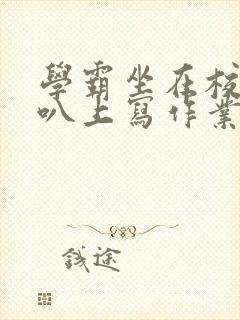 學霸坐在校
叭上寫作業
錢途